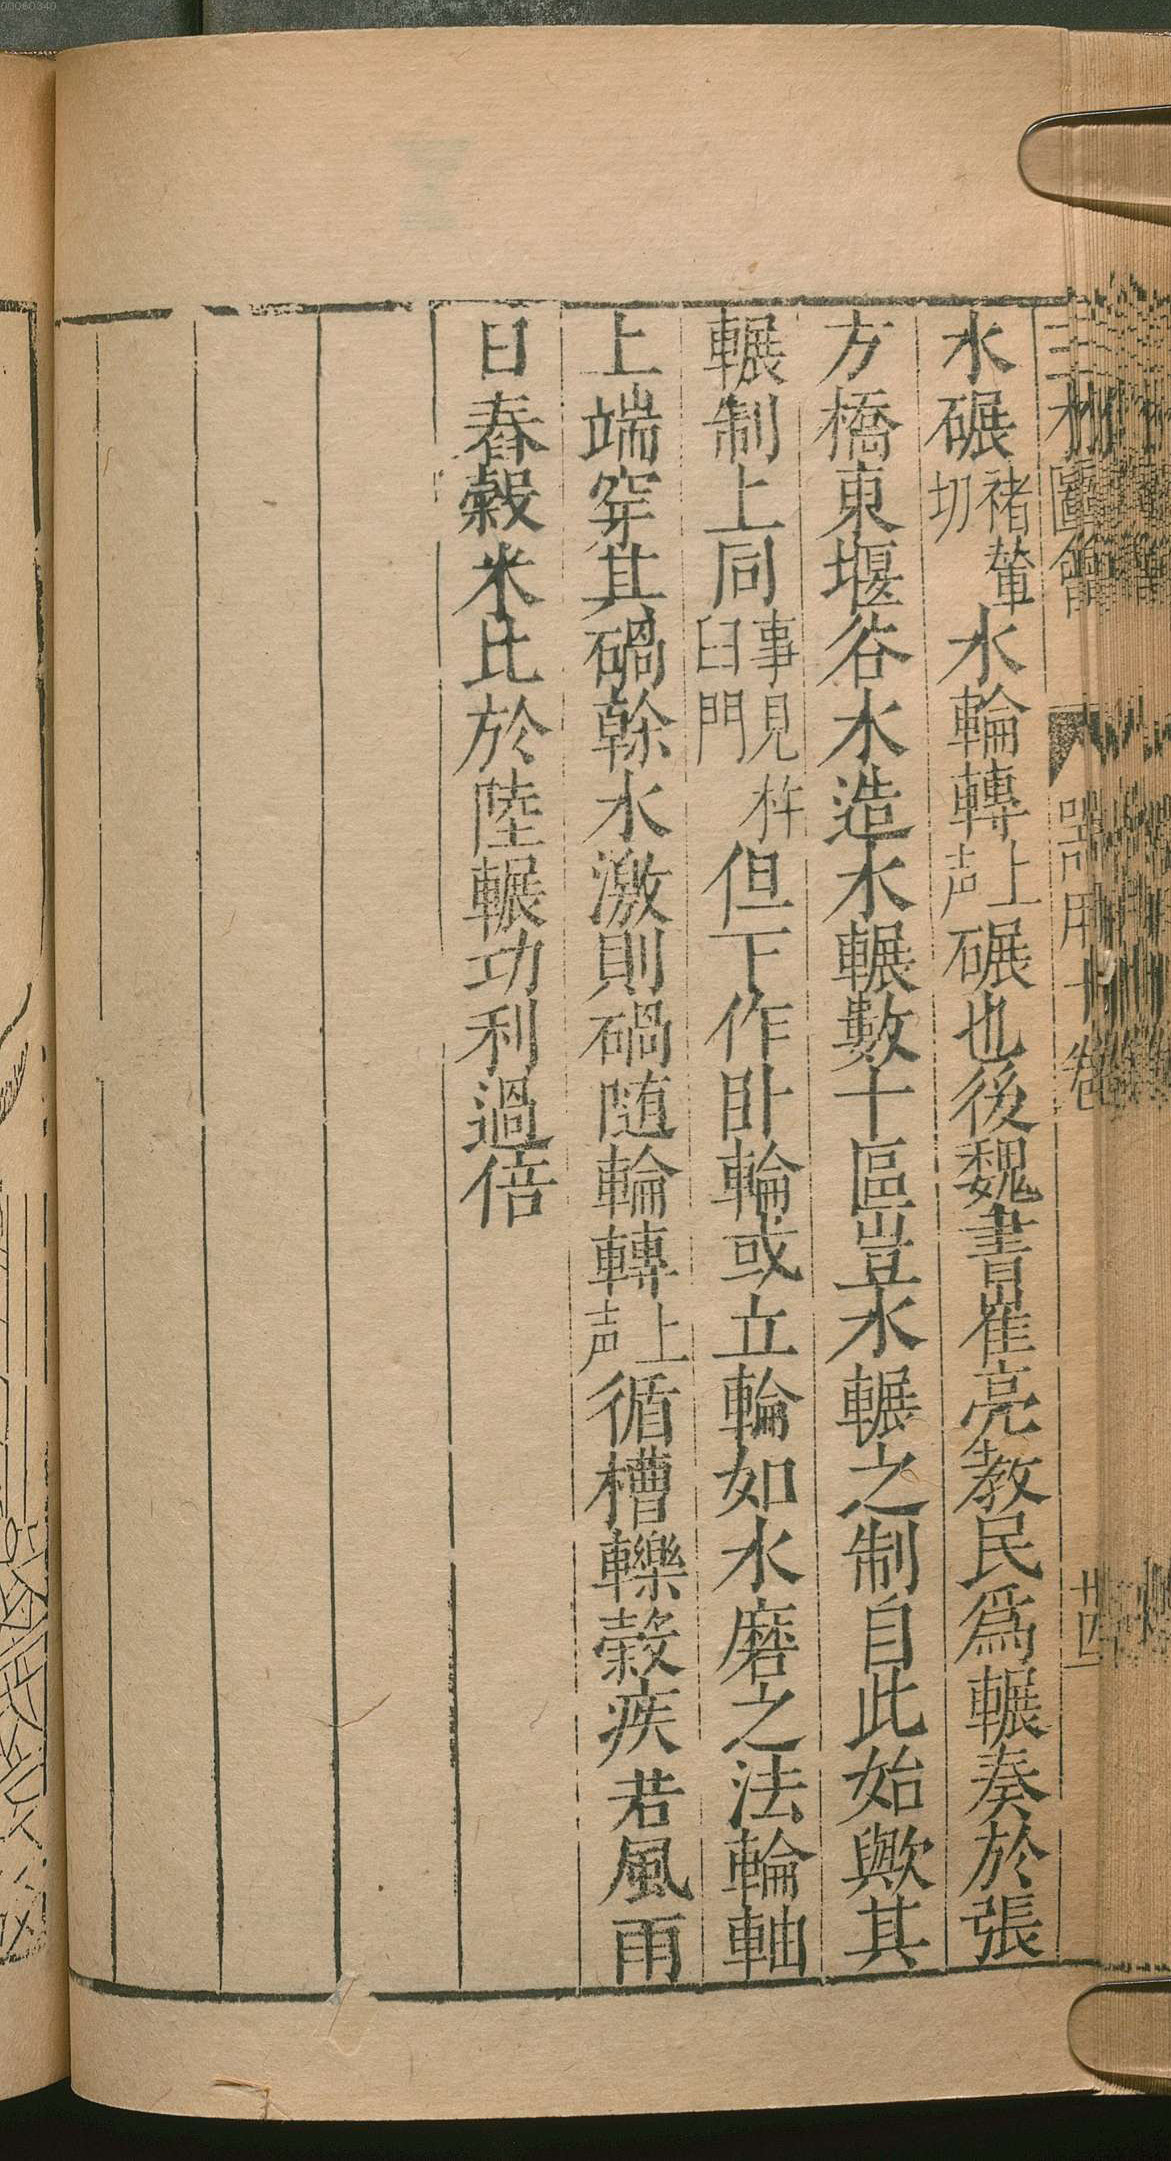 三才圖會 器用十卷 廿四
水碾褚輦切水輪轉上声碾也後魏書崔亮教民爲輾奏於張
方橋東堰谷水造水輾數十區豈水輾之制自此始歟其
輾制上同事見杵臼門但下作臥輪或立輪如水磨之法輪軸
上端穿其碢榦水激則碢随輪轉上声循槽轢榖疾若風雨
日舂榖米比於陸輾功利過倍
00060340